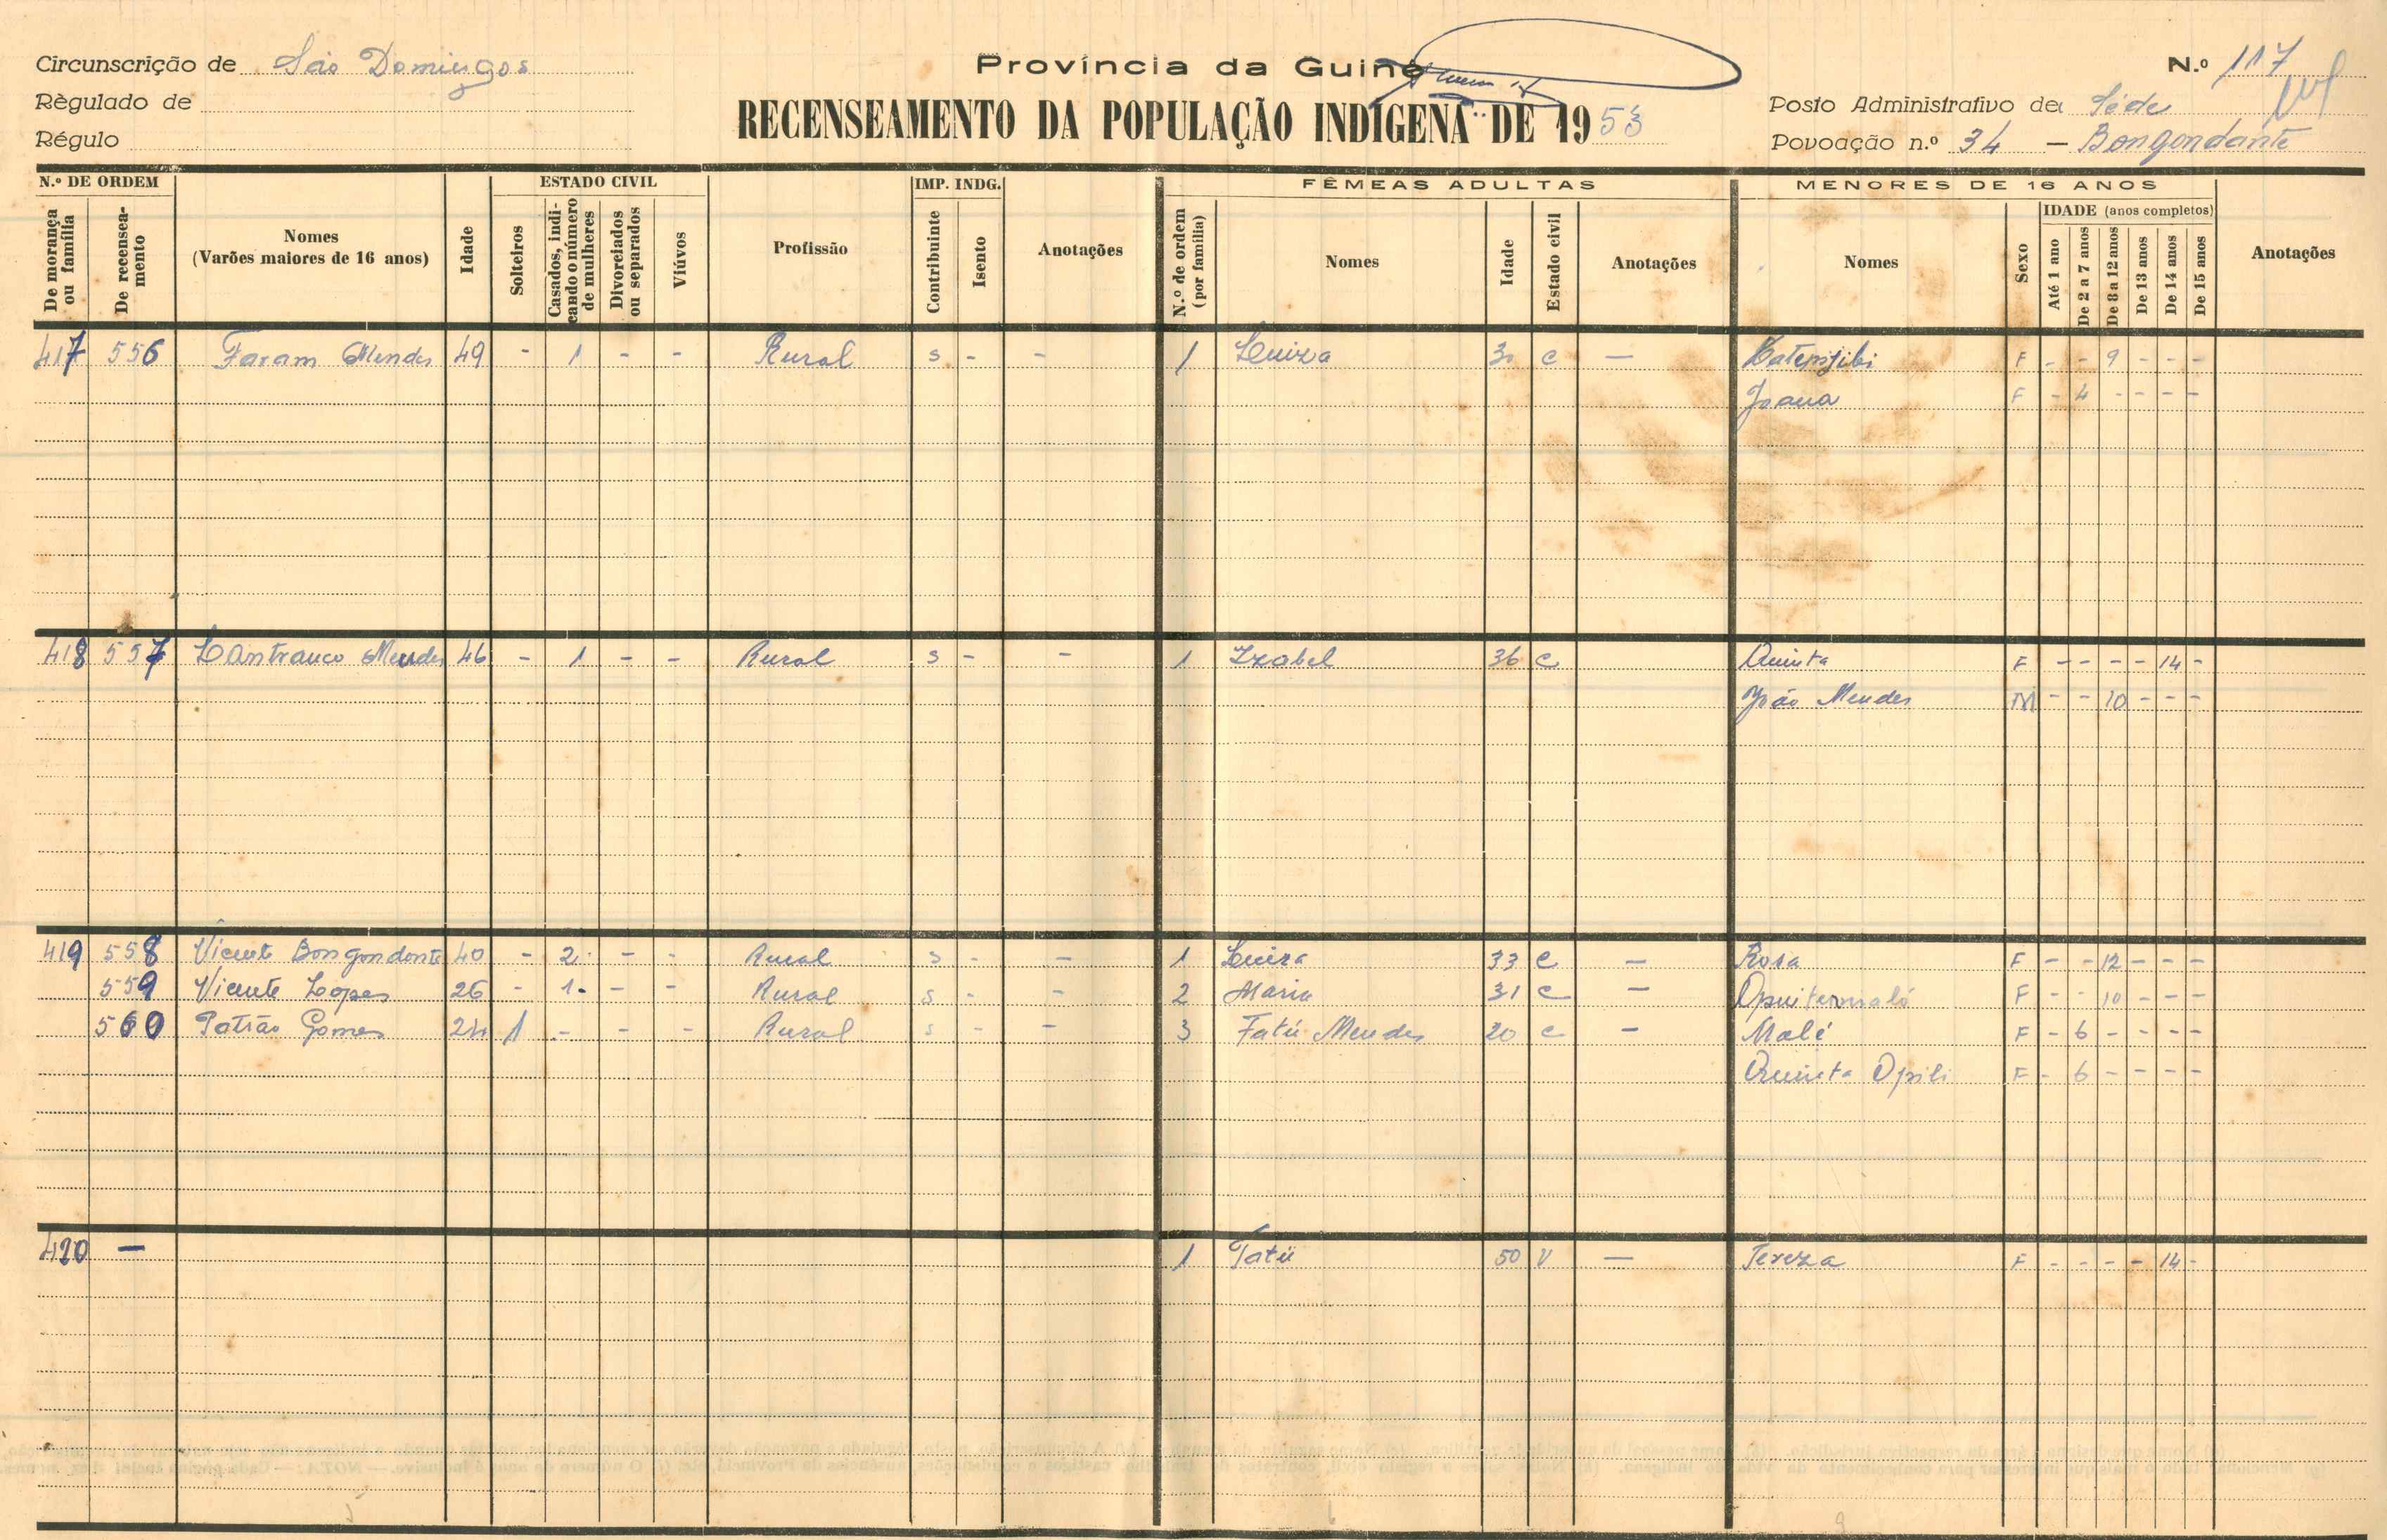 Circunscrição de São Domingos
Règulado de
Régulo
Província da Guiné
RECENSEAMENTO DA POPULAÇÃO INDÍGENA DE 1953
N.º 117
Posto Administrativo de Séde
Povoação n.º 34 — Bongondante
N.º DE ORDEM
De morança ou família
De recensea-mento
Nomes
(Varões maiores de 16 anos)
Idade
ESTADO CIVIL
Solteiros
Casados, indi-cando o número de mulheres
Divorciados ou separados
Viúvos
Profissão
IMP. INDG.
Contribuinte
Isento
Anotações
FÊMEAS ADULTAS
N.º de ordem (por família)
Nomes
Idade
Estado civil
Anotações
MENORES DE 16 ANOS
Nomes
Sexo
IDADE (anos completos)
Até 1 ano
De 2 a 7 anos
De 8 a 12 anos
De 13 anos
De 14 anos
De 15 anos
Anotações
417 556 Faram Mendes 49 - 1 - - Rural s - - 1 Luiza 30 c — F - - 9 - - -
Joana F - 4 - - - -
418 557 Lanfranco Mendes 46 - 1 - - Rural s - - 1 Izabel 36 c Quinta F - - - - 14 -
João Mendes M - - 10 - - -
419 558 Vicente Bongondante 40 - 2 - - Rural s - - 1 Luiza 33 c — Rosa F - - 12 - - -
559 Vicente Lopes 26 - 1 - - Rural s - - 2 Maria 31 c — F - - 10 - - -
560 Patrão Gomes 24 1 - - - Rural s - - 3 Fatú Mendes 20 c — Malé F - 6 - - - -
Quinta Opili F - 6 - - - -
420 — 1 Tatú 50 V — Tereza F - - - - 14 -